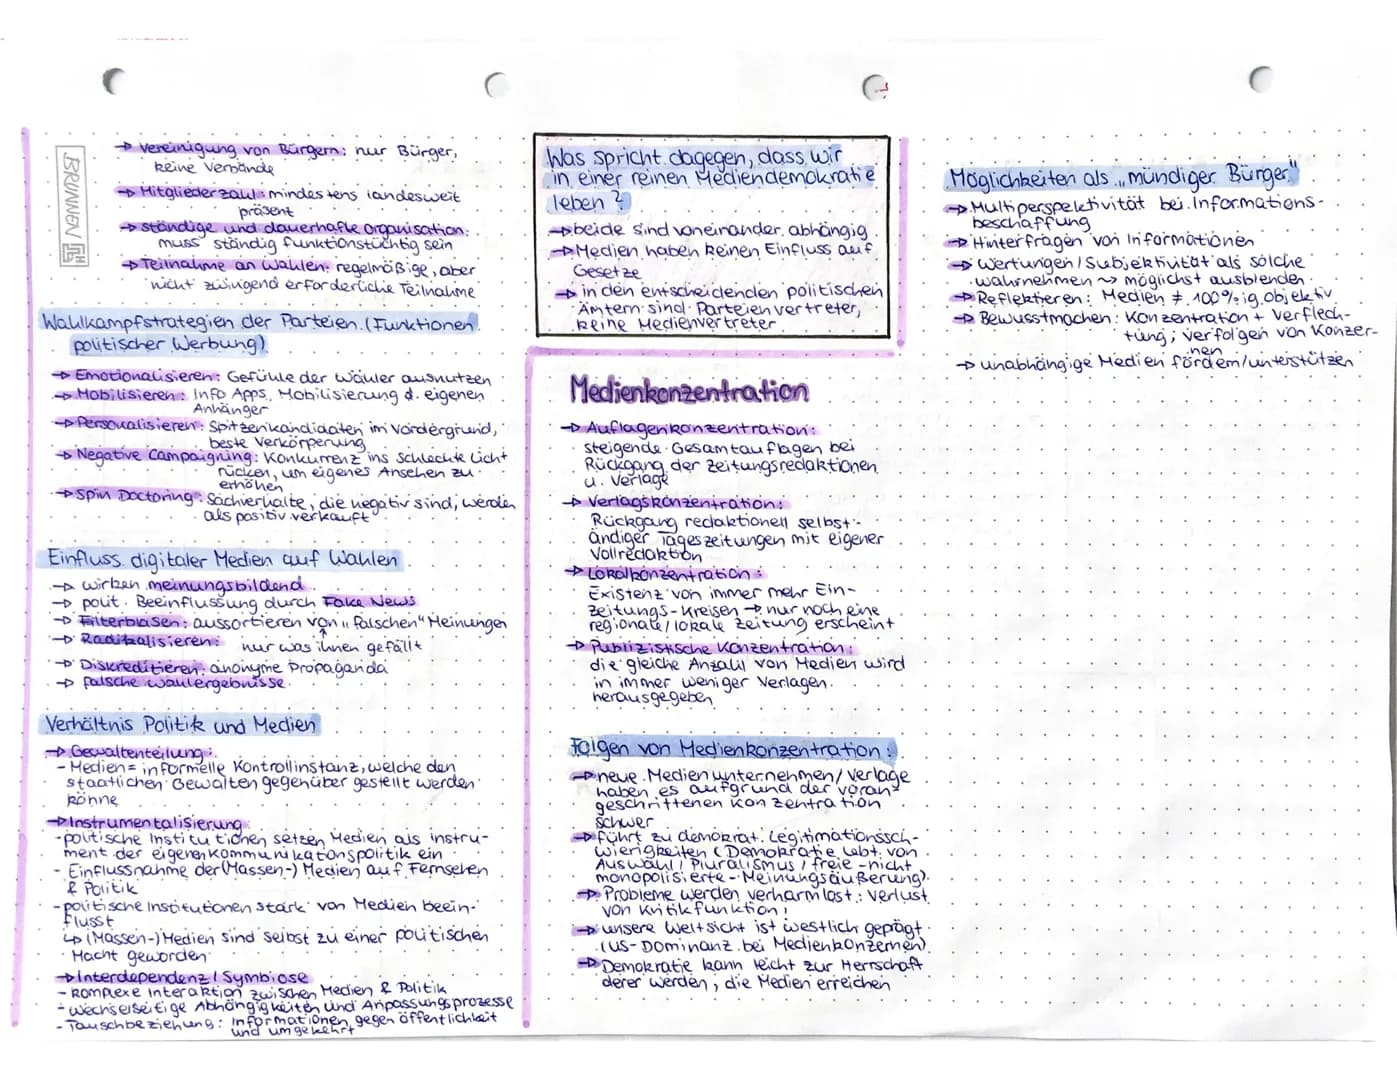 BRUNNEN
→ Vereinigung von Bürgern: nur Bürger,
keine Verbände
→ Mitgliederzahl: mindestens landesweit
präsent
→ ständige und dauerhafte Organisation:
muss ständig funktionstüchtig sein
→ Teilnahme an Wahlen: regelmäßige, aber
nicht zwingend erforderliche Teilnahme
Wahlkampfstrategien der Parteien (Funktionen
politischer Werbung)
→ Emotionalisieren: Gefühle der Wähler ausnutzen
→ Mobilisieren: Info Apps, Mobilisierung d. eigenen
Anhänger
→ Personalisieren: Spitzenkandidaten im Vordergrund,
beste Verkörperung
→ Negative Campaigning: Konkurrenz ins schlechte Licht
rücken, um eigenes Ansehen zu
erhöhen
→ Spin Doctoring: Sachverhalte, die negativ sind, werden
als positiv verkauft
Einfluss digitaler Medien auf Wahlen
→ wirken meinungsbildend
→ polit. Beeinflussung durch Fake News
→ Filterblasen: aussortieren von „falschen" Meinungen
→ Radikalisieren: nur was ihnen gefällt
→ Diskreditieren: anonyme Propaganda
→ falsche Wahlergebnisse
Verhältnis Politik und Medien
→ Gewaltenteilung:
- Medien = informelle Kontrollinstanz, welche den
staatlichen Gewalten gegenüber gestellt werden
könne
→ Instrumentalisierung
- politische Institutionen setzen Medien als Instru-
ment der eigenen Kommunikationspolitik ein
- Einflussnahme der (Massen-) Medien auf Fernsehen
& Politik
- politische Institutionen stark von Medien beein-
flusst
↳ (Massen-) Medien sind selbst zu einer politischen
Macht geworden
→ Interdependenz / Symbiose
- komplexe Interaktion zwischen Medien & Politik
- wechselseitige Abhängigkeiten und Anpassungsprozesse
- Tauschbeziehung: Informationen gegen Öffentlichkeit
und umgekehrt
Was spricht dagegen, dass wir
in einer reinen Mediendemokratie
leben?
→ beide sind voneinander abhängig
→ Medien haben keinen Einfluss auf
Gesetze
→ in den entscheidenden politischen
Ämtern sind Parteienvertreter,
keine Medienvertreter
Medienkonzentration
→ Auflagenkonzentration:
steigende Gesamtauflagen bei
Rückgang der Zeitungsredaktionen
u. Verlage
→ Verlagskonzentration:
Rückgang redaktionell selbst-
ändiger Tageszeitungen mit eigener
Vollredaktion
→ Lokalkonzentration:
Existenz von immer mehr Ein-
zeitungs-Kreisen → nur noch eine
regionale / lokale Zeitung erscheint
→ Publizistische Konzentration:
die gleiche Anzahl von Medien wird
in immer weniger Verlagen
herausgegeben
Folgen von Medienkonzentration:
→ neue Medienunternehmen / Verlage
haben es aufgrund der voran-
geschrittenen Konzentration
schwer
→ führt zu demokrat. Legitimationssch-
wierigkeiten (Demokratie lebt von
Auswahl / Pluralismus / freie - nicht
monopolisierte - Meinungsäußerung).
→ Probleme werden verharmlost: Verlust
von Kritikfunktion!
→ unsere Weltsicht ist westlich geprägt
(US-Dominanz bei Medienkonzernen)
→ Demokratie kann leicht zur Herrschaft
derer werden, die Medien erreichen
Möglichkeiten als „mündiger Bürger"
→ Multiperspektivität bei Informations-
beschaffung
→ Hinterfragen von Informationen
→ Wertungen / Subjektivität als solche
wahrnehmen ~> möglichst ausblenden
→ Reflektieren: Medien ≠ 100%ig objektiv
→ Bewusstmachen: Konzentration + Verflech-
tung; verfolgen von Konzer-
nen
→ unabhängige Medien fördern/unterstützen